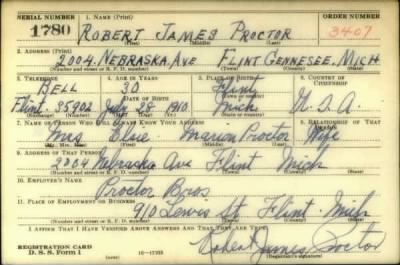 SERIAL NUMBER 1. NAME (Print) ORDER NUMBER
1780 ROBERT JAMES PROCTOR 3407
(First) (Middle) (Last)
2. ADDRESS (Print)
2004. NEBRASKA. AVE FLINT GENNESEE. MICH
(Number and street or R. F. D. number) (Town) (County) (State)
3. TELEPHONE 4. AGE IN YEARS 5. PLACE OF BIRTH 6. COUNTRY OF CITIZENSHIP
BELL 30 Flint
DATE OF BIRTH
Flint. 35902 July 28 1910 Mich. U. S. A.
(Exchange) (Number) (Mo.) (Day) (Yr.) (State or country)
7. NAME OF PERSON WHO WILL ALWAYS KNOW YOUR ADDRESS 8. RELATIONSHIP OF THAT PERSON
Mrs Elsie Marion Proctor Wife
(Mr., Mrs., Miss) (First) (Middle) (Last)
9. ADDRESS OF THAT PERSON
2004 Nebraska Ave Flint Mich
(Number and street or R. F. D. number) (Town) (County) (State)
10. EMPLOYER'S NAME
Proctor Bros
11. PLACE OF EMPLOYMENT OR BUSINESS
910 Lewis St. Flint. Mich
(Number and street or R. F. D. number) (Town) (County) (State)
I AFFIRM THAT I HAVE VERIFIED ABOVE ANSWERS AND THAT THEY ARE TRUE.
REGISTRATION CARD
D. S. S. Form 1 16—17105 Robert James Proctor
(Registrant's signature)